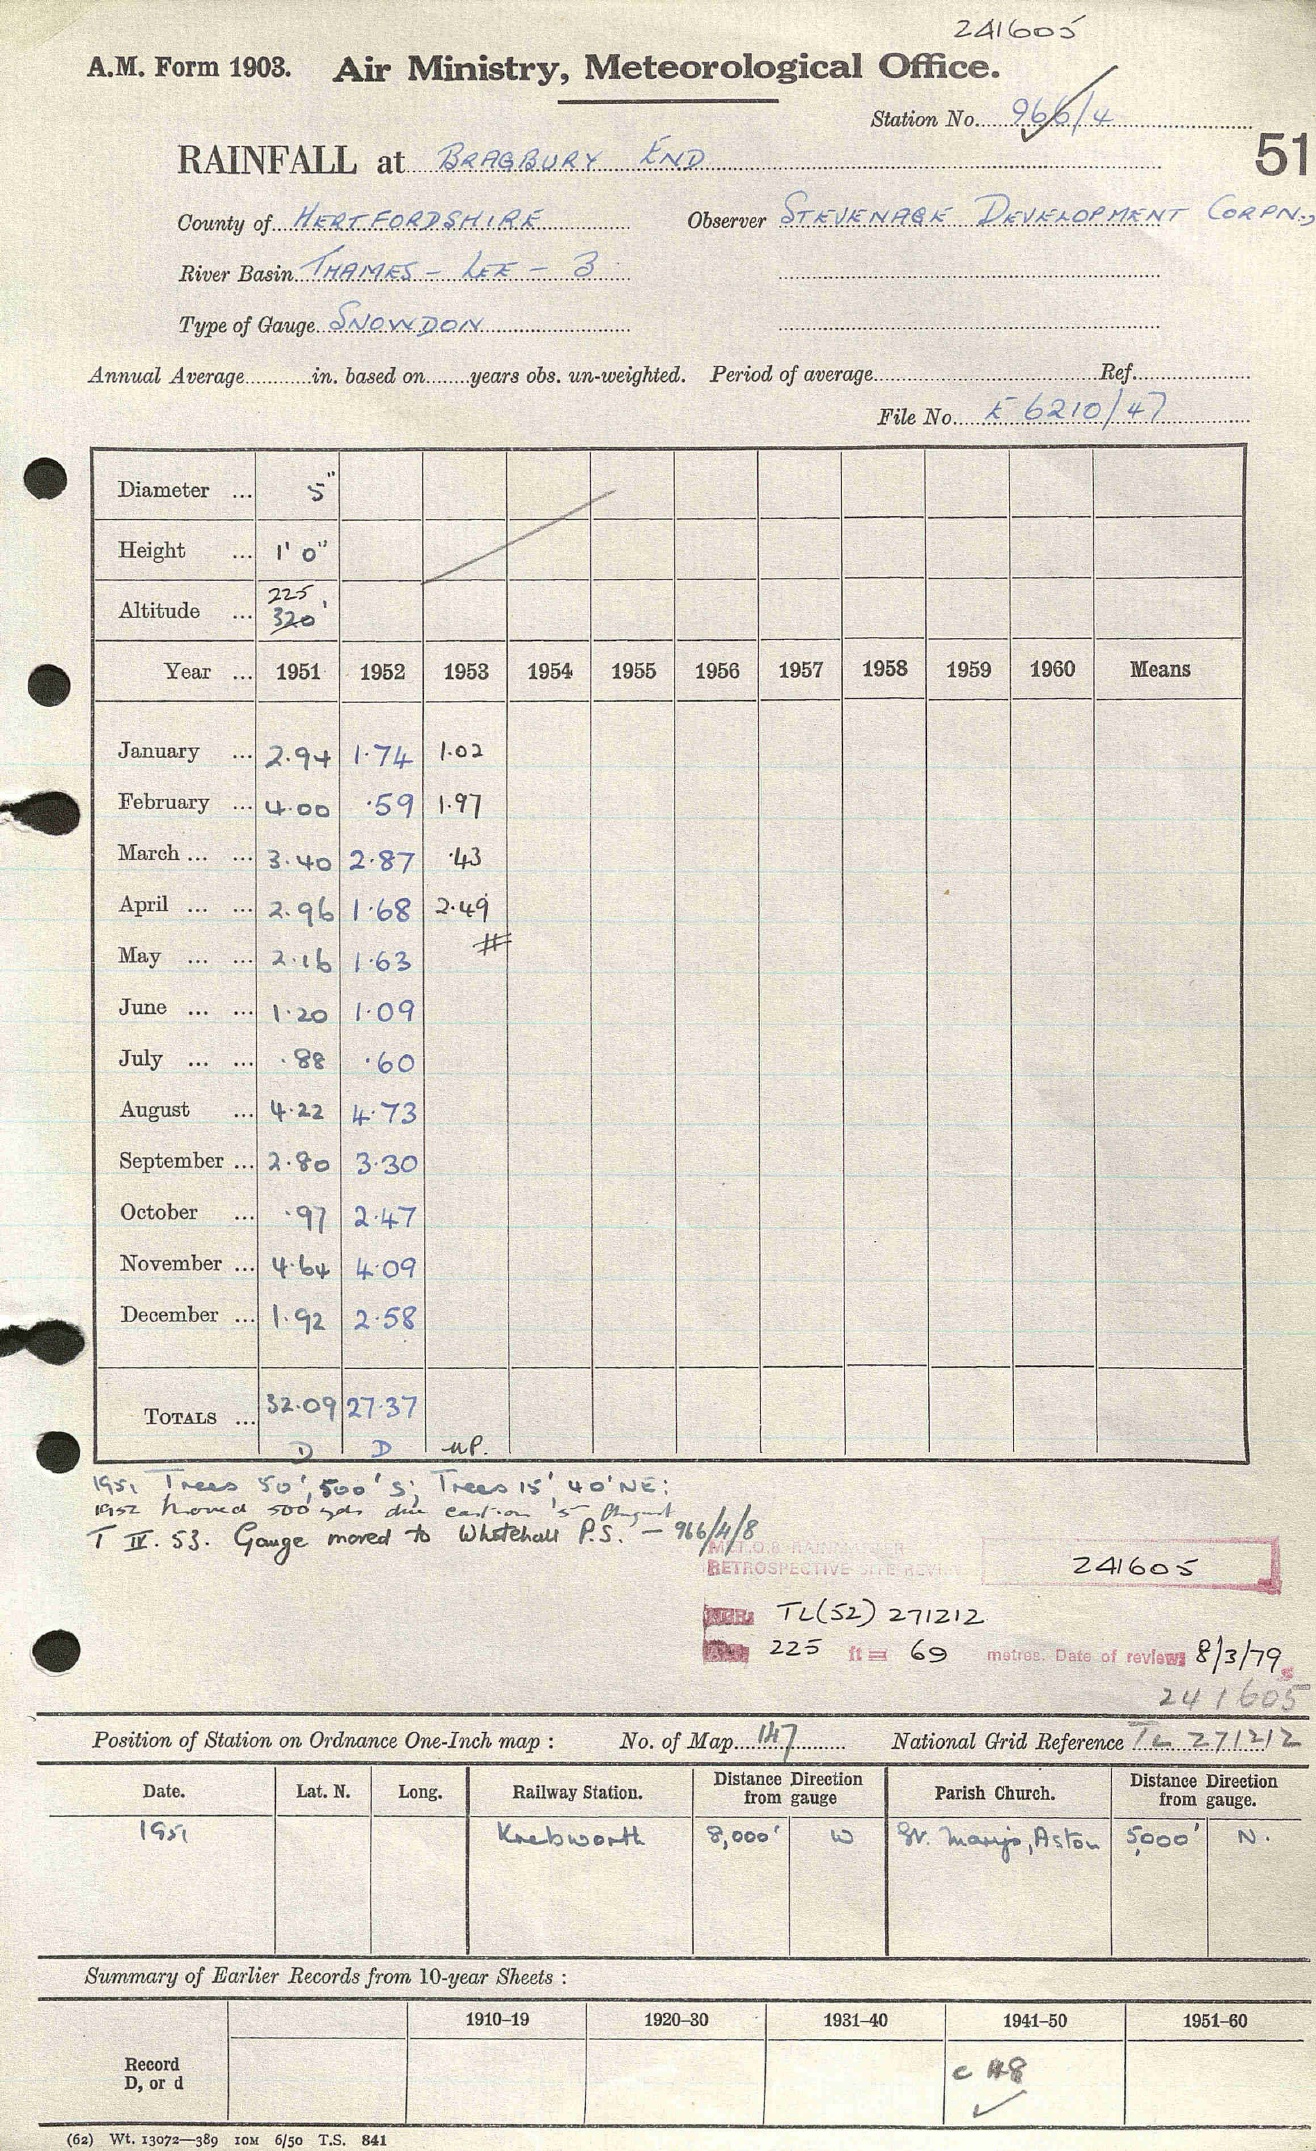 241605
A.M. Form 1903. Air Ministry, Meteorological Office.
Station No. 966/4
51
RAINFALL at BRAGBURY END
County of HERTFORDSHIRE Observer STEVENAGE DEVELOPMENT CORPN.,
River Basin THAMES - LEE - 3
Type of Gauge SNOWDON
Annual Average in. based on years obs. un-weighted. Period of average Ref.
File No. E 6210/47
Diameter ... 5"
Height ... 1' 0"
225
Altitude ... 320'
Year ... 1951 1952 1953 1954 1955 1956 1957 1958 1959 1960 Means
January ... 2.94 1.74 1.02
February ... 4.00 .59 1.97
March ... ... 3.40 2.87 .43
April ... ... 2.96 1.68 2.49
May ... ... 2.16 1.63 #
June ... ... 1.20 1.09
July ... ... .88 .60
August ... 4.22 4.73
September ... 2.80 3.30
October ... .97 2.47
November ... 4.64 4.09
December ... 1.92 2.58
TOTALS ... 32.09 27.37
D D MP.
1951 Trees 50', 500' S; Trees 15', 40' NE;
1952 Moved 500 yds due east on 5 August
T IV. 53. Gauge moved to Whitehall P.S. - 966/4/8
MET.O.8 RAINMASTER
RETROSPECTIVE SITE REVIEW 241605
NGR TL(52) 271212
225 ft = 69 metres. Date of review 8/3/79
241605
Position of Station on Ordnance One-Inch map : No. of Map 147 National Grid Reference TL 271212
Date. Lat. N. Long. Railway Station. Distance Direction from gauge Parish Church. Distance Direction from gauge.
1951 Knebworth 8,000' W St. Mary's, Aston 5,000' N.
Summary of Earlier Records from 10-year Sheets :
1910–19 1920–30 1931–40 1941–50 1951–60
Record
D, or d
c 48
(62) Wt. 13072—389 10M 6/50 T.S. 841